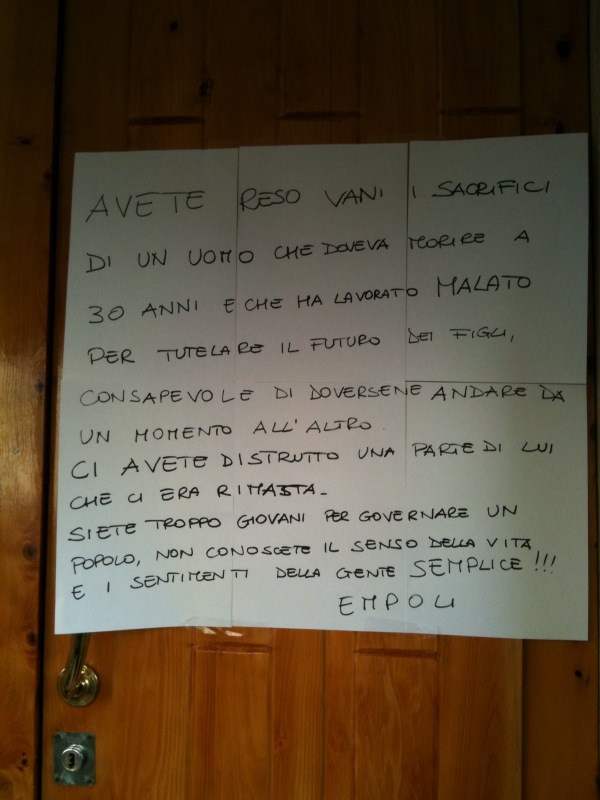 AVETE RESO VANI I SACRIFICI
DI UN UOMO CHE DOVEVA MORIRE A
30 ANNI E CHE HA LAVORATO MALATO
PER TUTELARE IL FUTURO DEI FIGLI,
CONSAPEVOLE DI DOVERSENE ANDARE DA
UN MOMENTO ALL'ALTRO.
CI AVETE DISTRUTTO UNA PARTE DI LUI
CHE CI ERA RIMASTA.
SIETE TROPPO GIOVANI PER GOVERNARE UN
POPOLO, NON CONOSCETE IL SENSO DELLA VITA
E I SENTIMENTI DELLA GENTE SEMPLICE!!!
EMPOLI